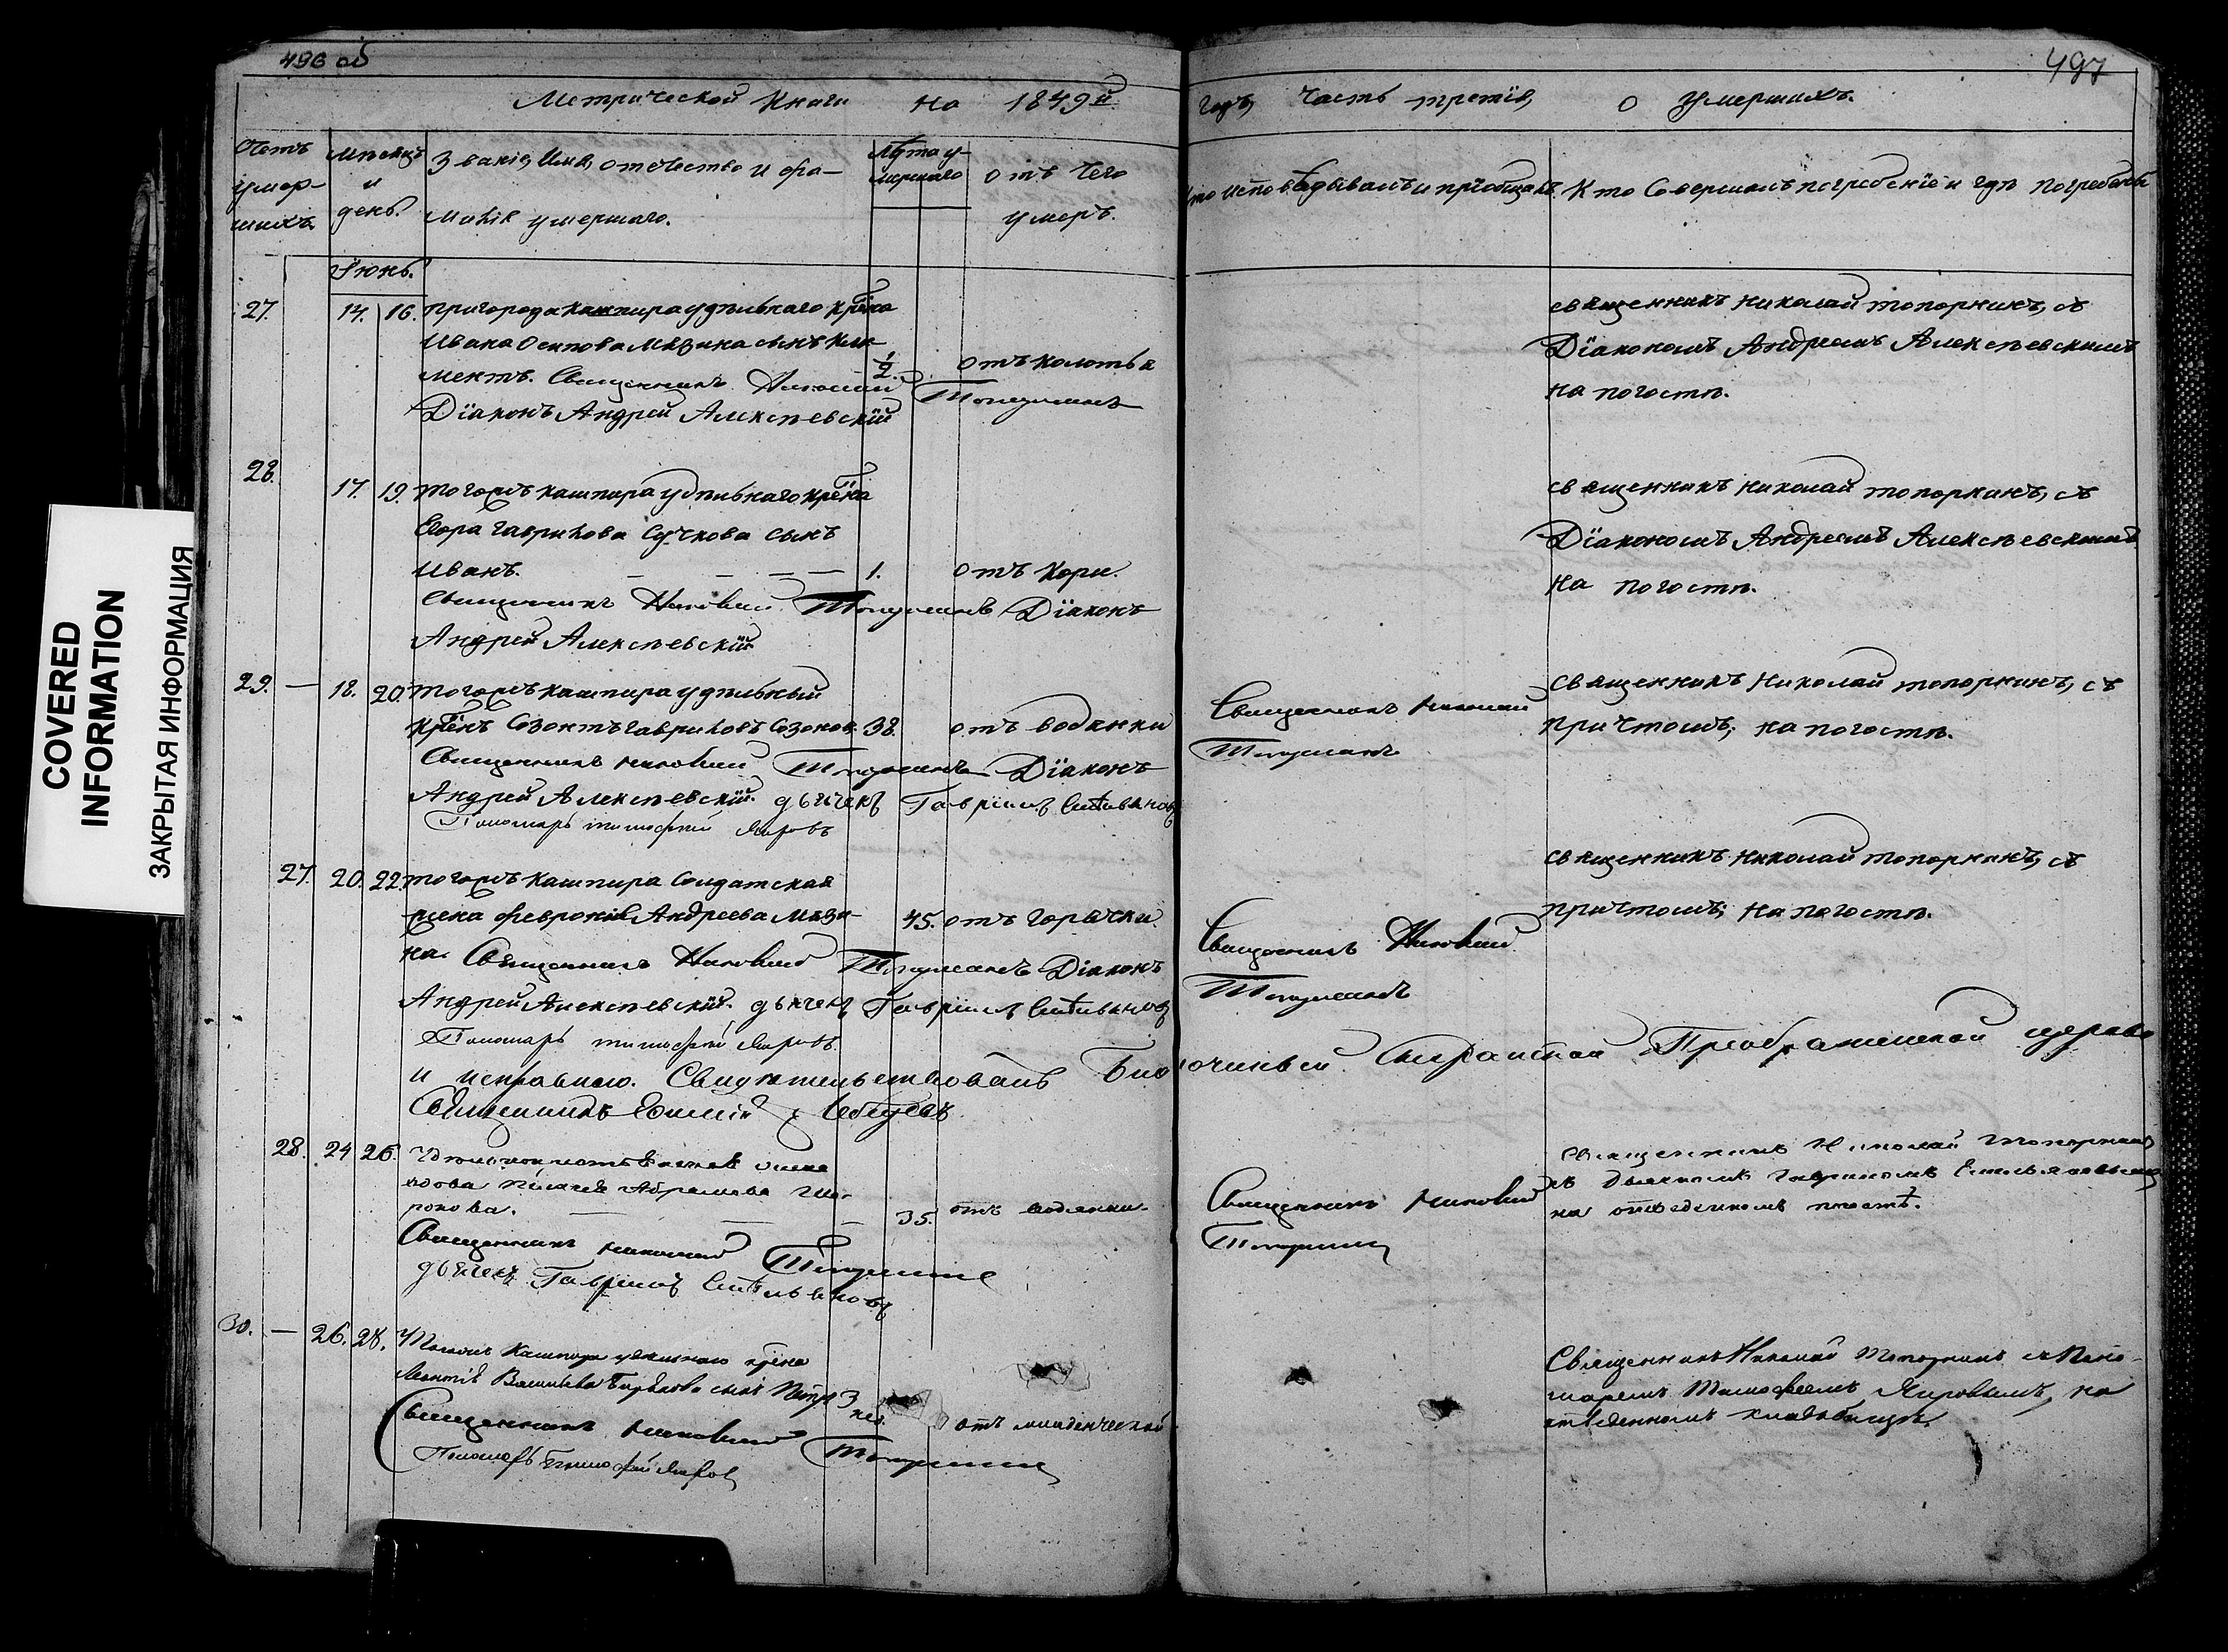 496 об
497
Метрической Книги на 1849й
Годъ, Часть третія, о умершихъ.
Счетъ умер-шихъ.
Мѣсяцъ и день.
Званіе, Имя, отечество и фа-
милія умершаго.
Лѣта у-
мершаго
отъ чего
умеръ.
Кто исповѣдывалъ и пріобщалъ.
Кто Совершалъ погребеніе и гдѣ погребены
Іюнь.
27. 14. 16. пригорода Кашпира удѣльнаго крѣна
Ивана Осипова Мязина сынъ Кли-
ментъ. Священникъ Николай
1/2. отъ колотья
Топорнинъ
Діаконъ Андрей Алексѣевскій
священникъ Николай топорнинъ, съ
Діакономъ Андреемъ Алексѣевскимъ
на погостѣ.
28. 17. 19. тогожъ кашпира удѣльнаго крѣна
Егора Гаврилова Сучкова сынъ
Иванъ. — — — — 1. отъ кори.
Священникъ Николай Топорнинъ Діаконъ
Андрей Алексѣевскій
священникъ Николай топорнинъ, съ
Діакономъ Андреемъ Алексѣевскимъ
на погостѣ.
29. — 18. 20. тогожъ кашпира удѣльный
крѣнъ Созонтъ Гавриловъ Созонов. 38. отъ водянки
Священникъ Николай Топорнинъ Діаконъ
Андрей Алексѣевскій. дьячекъ Гавріилъ Емѣльяновъ
Пономарь тимофей Яировъ
Священникъ Николай
Топорнинъ
священникъ Николай топорнинъ, съ
причтомъ; на погостѣ.
27. 20. 22. тогожъ кашпира Солдатская
жена Февронія Андреева Мязи-
на. 45. отъ горячки.
Священникъ Николай Топорнинъ Діаконъ
Андрей Алексѣевскій. дьячекъ Гавріилъ Емѣльяновъ
Пономарь тимофей Яировъ.
Священникъ Николай
Топорнинъ
священникъ Николай топорнинъ, съ
причтомъ; на погостѣ.
и исправною. Свидѣтельствовалъ Благочинный Сызранской Преображенской церкви
Священникъ Лебедевъ
28. 24 26.
вдова Абрамова Ши-
рокова. — — — 35. отъ водянки.
Священникъ Николай Топорнинъ
дьячекъ Гавріилъ Емѣльяновъ
Священникъ Николай
Топорнинъ
Священникъ Николай Топорнинъ
съ дьячкомъ Гавріиломъ Емельяновымъ
на отведенномъ мѣстѣ.
30. — 26. 28. Тогожъ Кашпира удѣльнаго крѣна
Васильева сынъ Петръ 3 нед. отъ младенческой
Священникъ Николай Топорнинъ
Пономарь Тимофей Яировъ
Священникъ Николай Топорнинъ съ Поно-
маремъ Тимофеемъ Яировымъ, на
отведенномъ кладбищѣ.
COVERED
INFORMATION
ЗАКРЫТАЯ ИНФОРМАЦИЯ